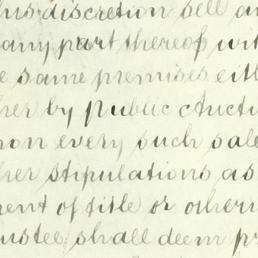 his discretion sell an
any part thereof wit
e same premises eith
her by public Auctio
pon every such sale
her stipulations as
ment of title or otherw
rustee shall deem pr